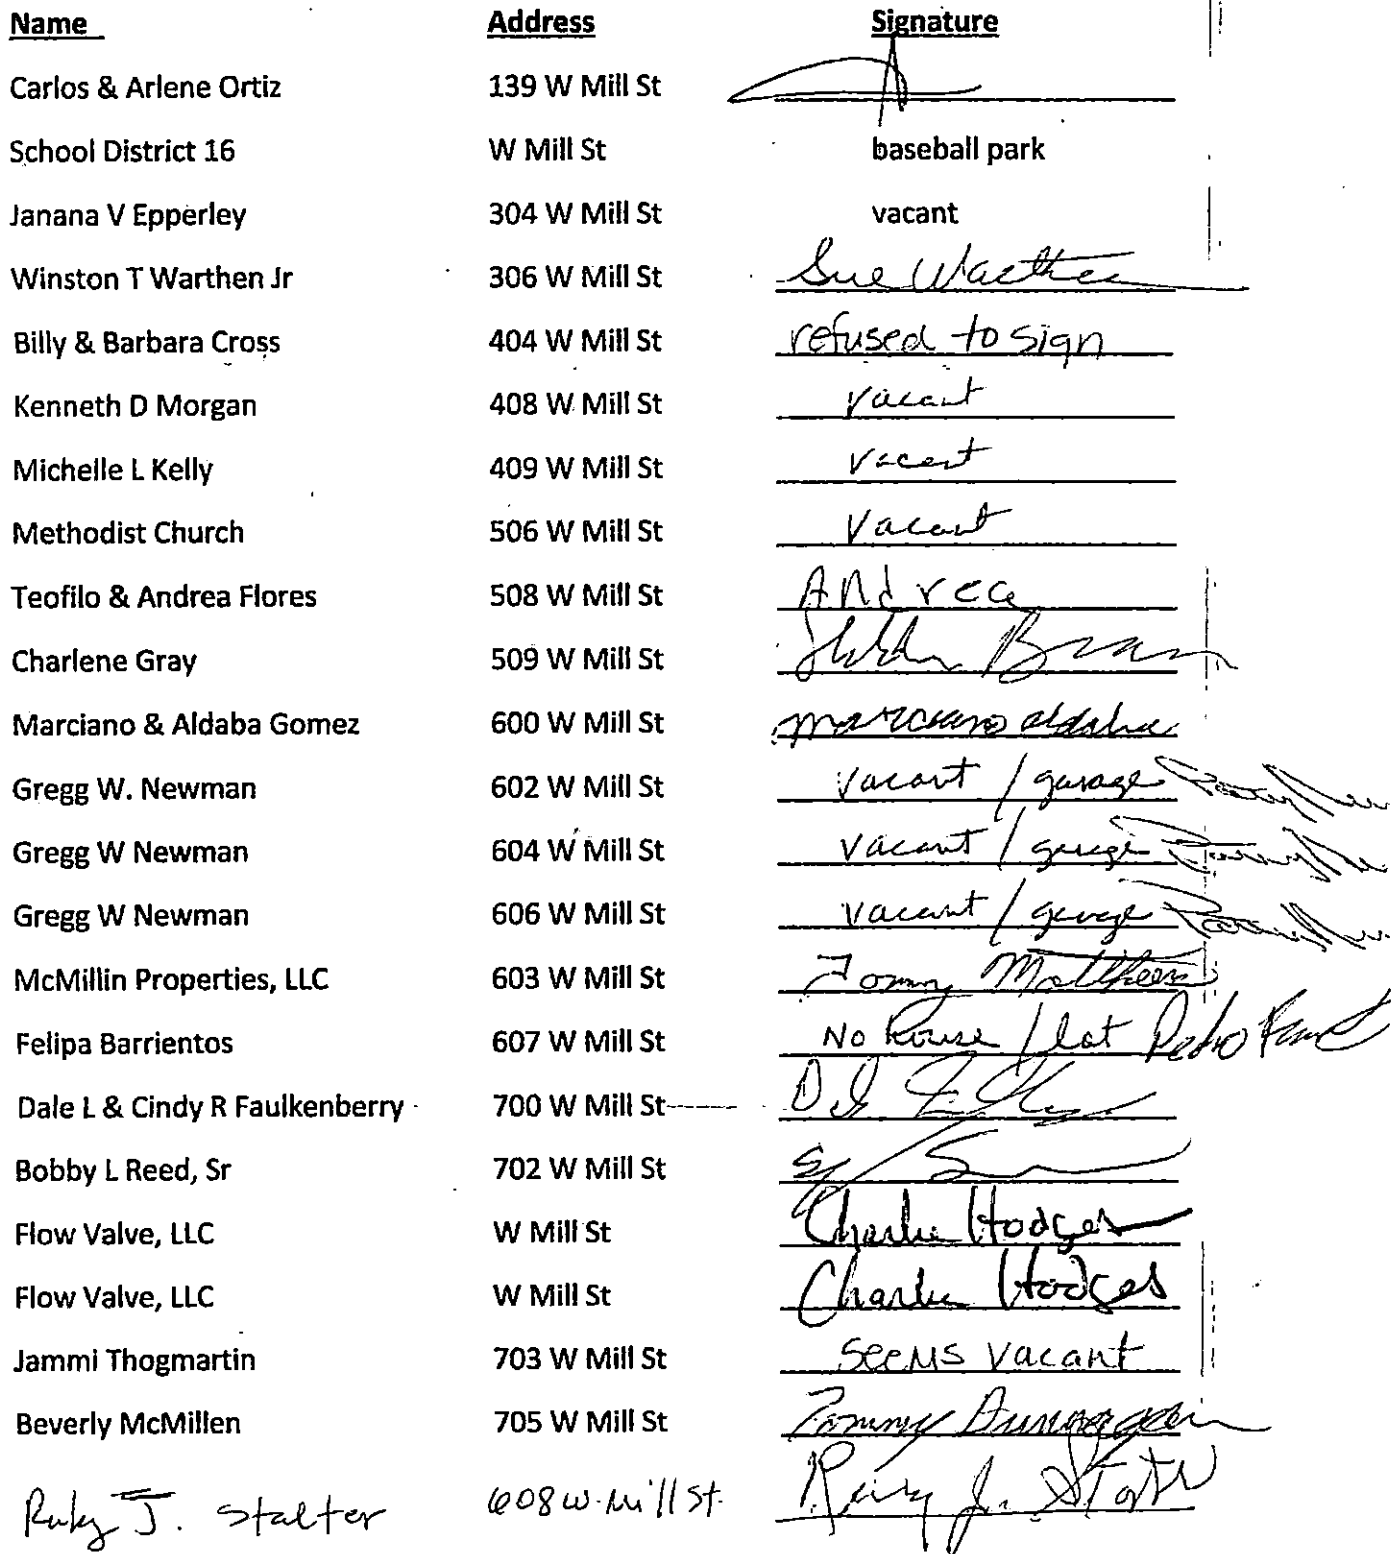 Name Address Signature
Carlos & Arlene Ortiz 139 W Mill St
School District 16 W Mill St baseball park
Janana V Epperley 304 W Mill St vacant
Winston T Warthen Jr 306 W Mill St Sue Warthen
Billy & Barbara Cross 404 W Mill St refused to sign
Kenneth D Morgan 408 W Mill St vacant
Michelle L Kelly 409 W Mill St vacant
Methodist Church 506 W Mill St Vacant
Teofilo & Andrea Flores 508 W Mill St ANdrea
Charlene Gray 509 W Mill St
Marciano & Aldaba Gomez 600 W Mill St marciano aldaba
Gregg W. Newman 602 W Mill St vacant / garage
Gregg W Newman 604 W Mill St vacant / garage
Gregg W Newman 606 W Mill St vacant / garage
McMillin Properties, LLC 603 W Mill St Tommy
Felipa Barrientos 607 W Mill St No house / lot Pedro
Dale L & Cindy R Faulkenberry 700 W Mill St
Bobby L Reed, Sr 702 W Mill St
Flow Valve, LLC W Mill St Charlie Hodges
Flow Valve, LLC W Mill St Charlie Hodges
Jammi Thogmartin 703 W Mill St seems vacant
Beverly McMillen 705 W Mill St Tommy
Ruby J. Stalter 608 W. Mill St. Ruby J. Stalter